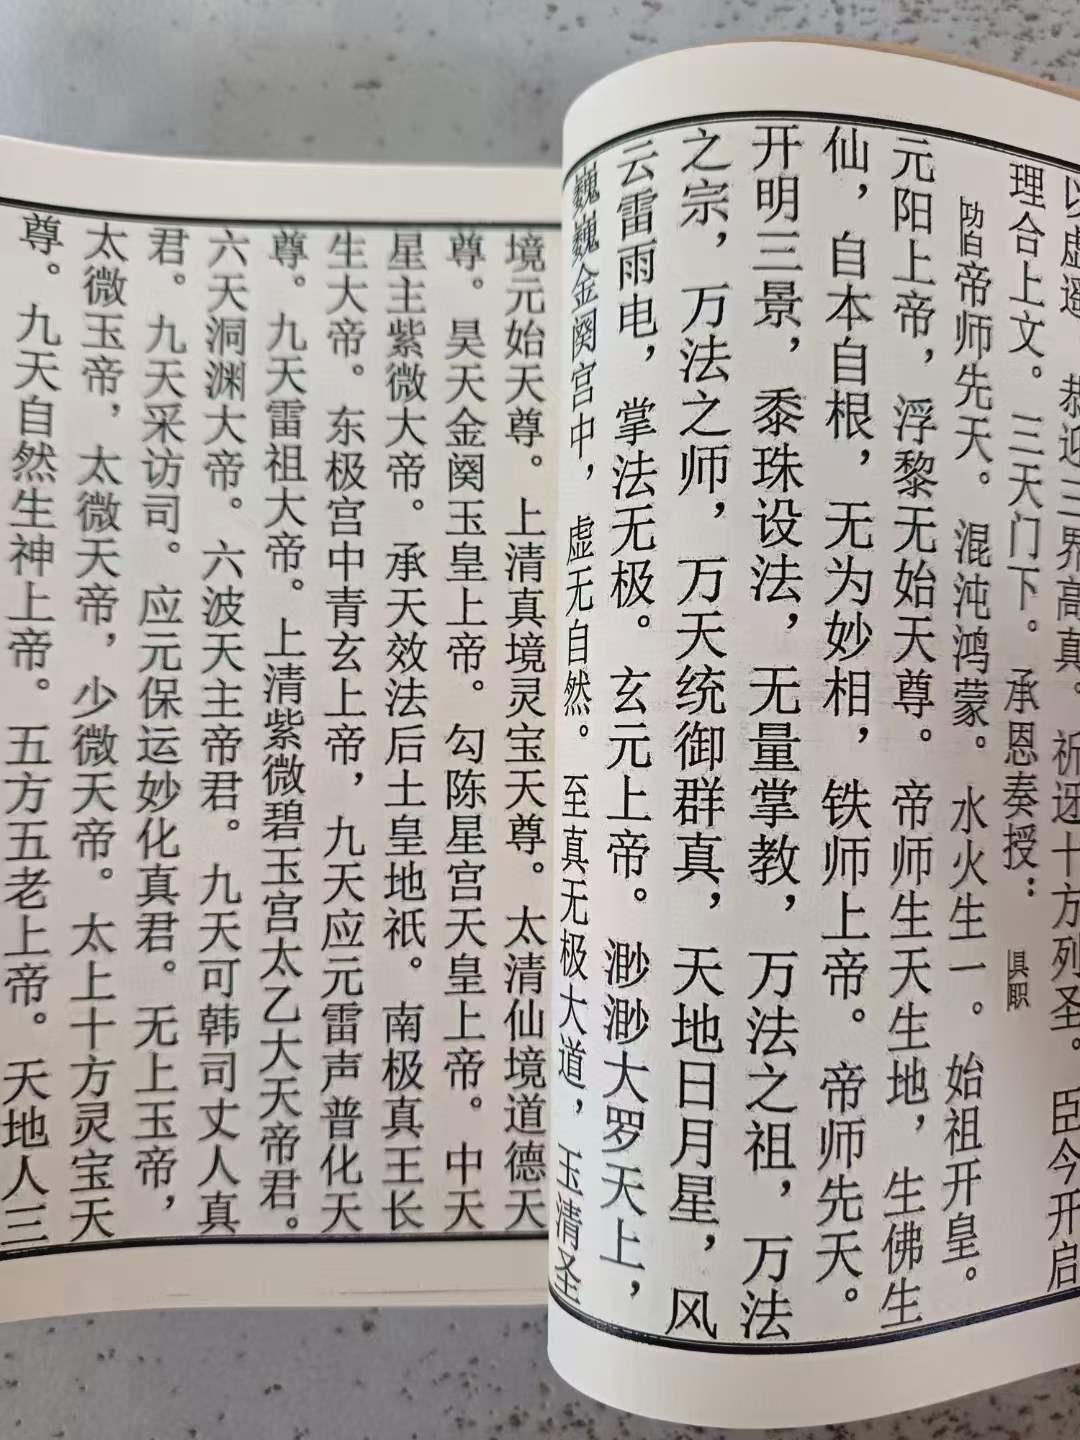 以虚遥 恭迎三界高真。祈迓十方列圣。臣今开启
理合上文。三天门下。承恩奏授： 具职
帝师先天。混沌鸿蒙。水火生一。始祖开皇。
元阳上帝，浮黎无始天尊。帝师生天生地，生佛生
仙，自本自根，无为妙相，铁师上帝。帝师先天。
开明三景，黍珠设法，无量掌教，万法之祖，万法
之宗，万法之师，万天统御群真，天地日月星，风
云雷雨电，掌法无极。玄元上帝。渺渺大罗天上，
巍巍金阕宫中，虚无自然。至真无极大道，玉清圣
境元始天尊。上清真境灵宝天尊。太清仙境道德天
尊。昊天金阕玉皇上帝。勾陈星宫天皇上帝。中天
星主紫微大帝。承天效法后土皇地祇。南极真王长
生大帝。东极宫中青玄上帝，九天应元雷声普化天
尊。九天雷祖大帝。上清紫微碧玉宫太乙大天帝君。
六天洞渊大帝。六波天主帝君。九天可韩司丈人真
君。九天采访司。应元保运妙化真君。无上玉帝，
太微玉帝，太微天帝，少微天帝。太上十方灵宝天
尊。九天自然生神上帝。五方五老上帝。天地人三